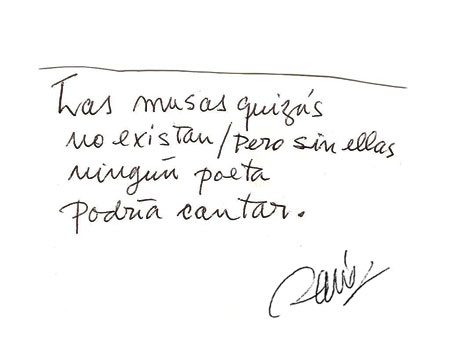 Las musas quizás
no existan/Pero sin ellas
ningún poeta
Podría cantar.